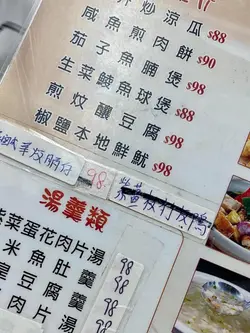 炒涼瓜 $88
咸魚煎肉餅 $90
茄子魚腩煲 $98
生菜鯪魚球煲 $88
煎炆釀豆腐 $98
椒鹽本地鮮魷 $98
98
湯羹類
紫菜蛋花肉片湯 98
米魚肚羹 98
皇豆腐羹 98
肉片湯 98